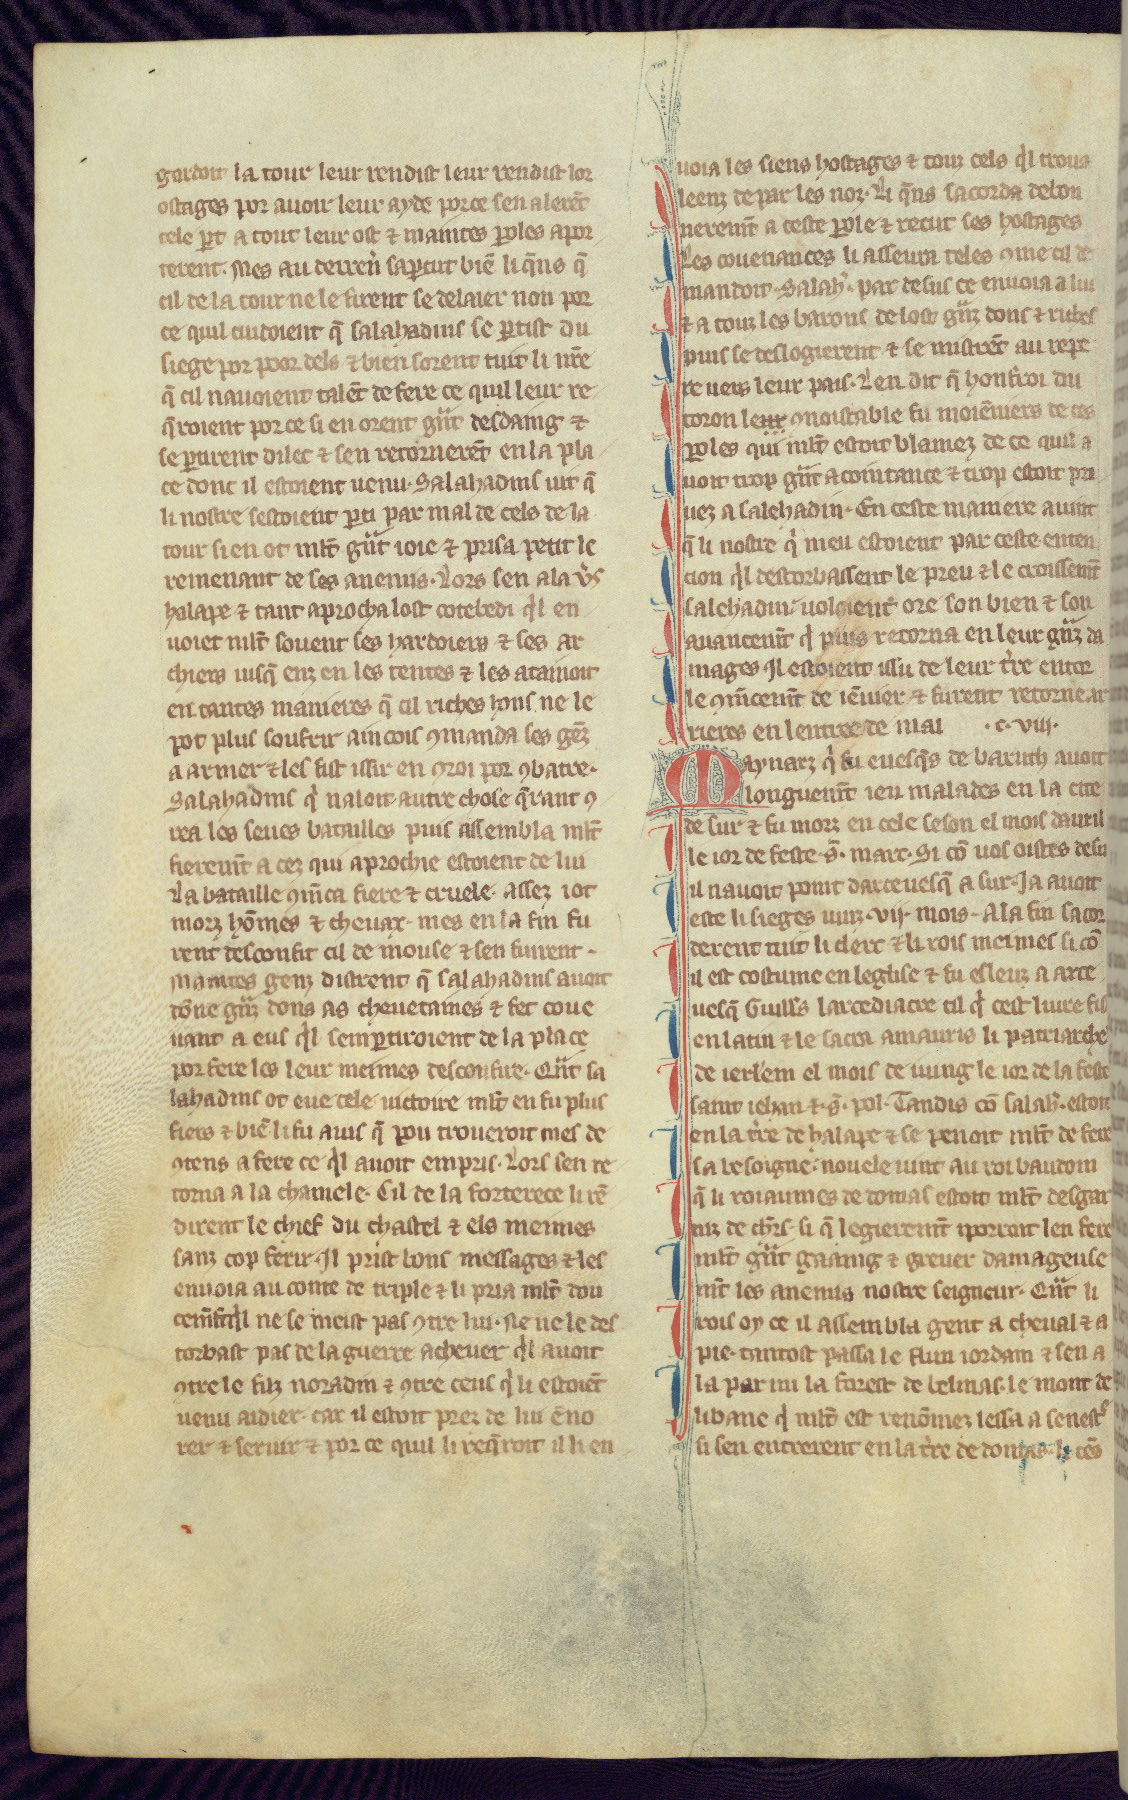 gardoit la tour leur rendist leur rendist lor
ostages por auoir leur ayde por ce sen alerēt
cele ꝑt a tout leur ost ⁊ maintes ꝑoles apor
terent. Mes au derreñ saꝑcut biē li q̄ns q̄
cil de la tour ne le firent se delaier non por
ce quil cuidoient q̄ salahadins se ꝑtist du
siege por poor dels ⁊ bien sorent tuit li nr̄e
q̄ cil nauoient talēt de fere ce quil leur re
q̄roient por ce si en orent gͣnt desdaing ⁊
se ꝑtirent dilec ⁊ sen retornerēt en la pla
ce dont il estoient uenu. Salahadins uit q̄
li nostre sestoient ꝑti par mal de cels de la
tour si en ot ml̄t gͣnt ioie ⁊ prisa petit le
remenant de ses anemis. Lors sen ala v̄s
halape ⁊ tant aprocha lost cotebedi qͥl en
uoiet ml̄t souent ses hardoiers ⁊ ses ar
chiers iusq̄ enz en les tentes ⁊ les atainoit
en tantes manieres q̄ cil riches hons ne le
pot plus soufrir aincois ꝯmanda ses gēz
a armer ⁊ les fist issir en ꝯroi por ꝯbatre.
Salahadins qͥ naloit autre chose q̄rant ꝯ
rea les seues batailles puis assembla ml̄t
fierem̄t a cez qui aprochie estoient de lui
La bataille ꝯm̄ca fiere ⁊ cruele. assez iot
morz hōmes ⁊ cheuax. mes en la fin fu
rent desconfit cil de mouse ⁊ sen fuirent.
maintes genz distrent q̄ salahadins auoit
dōne gͣnz dons as cheuetaines ⁊ fet coue
nant a eus qͥl sem ꝑtiroient de la place
por fere les leur meimes desconfire. Qͣnt sa
lahadins ot eue cele uictoire ml̄t en fu plus
fiers ⁊ biē li fu auis q̄ pou troueroit mes de
ꝯtens a fere ce qͥl auoit empris. Lors sen re
torna a la chamele. Cil de la forterece li rē
dirent le chief du chastel ⁊ els meimes
sanz cop ferir. Il prist bons messages ⁊ les
enuoia au conte de triple ⁊ li pria ml̄t dou
cem̄t qͥl ne se meist pas ꝯtre lui. Ne ne le des
torbast pas de la guerre acheuer qͥl auoit
ꝯtre le filz noradin ⁊ ꝯtre ceus qͥ li estoiēt
uenu aidier. car il estoit prez de lui ēno
rer ⁊ seruir ⁊ por ce quil li req̄roit il li en
uoia les siens hostages ⁊ touz cels qͥl troua
leenz de par les noz. Li q̄ns sacorda debon
nerem̄t a ceste ꝑole ⁊ recut ses hostages
Les couenances li asseura teles ꝯme cil de
mandoit. Salah̄. par desus ce enuoia a lui
⁊ a touz les barons de lost gͣnz dons ⁊ riches
puis se deslogierent ⁊ se mistrēt au repe
re uers leur pais. Len dit q̄ honfroi du
toron leur ꝯnoistable fu moiēniers de ces
ꝑoles qui ml̄t estoit blamez de ce quil a
uoit trop gͣnt acointance ⁊ trop estoit pri
uez a salehadin. En ceste maniere auint
q̄ li nostre qͥ meu estoient par ceste enten
cion qͥl destorbassent le preu ⁊ le croissem̄t
salehadin. uoloient ore son bien ⁊ son
auancem̄t qͥ puis retorna en leur gͣnz da
mages Il estoient issu de leur tr̄e entor
le ꝯm̄cem̄t de iēuier ⁊ furent retorne ar
rieres en lentree de mai .c. viii.
Maynarz qͥ fu euesq̄s de baruth auoit
longuem̄t ieu malades en la cite
de sur ⁊ fu morz en cele seson el mois dauril
le ior de feste .s̄. marc. Si cō uos oistes desu
il nauoit point darceuesq̄ a sur. Ja auoit
este li sieges uuiz .vij. mois. A la fin sacor
derent tuit li clerc ⁊ li rois meimes si cō
il est costume en leglise ⁊ fu esleuz a arce
uesq̄ Guill's larcediacre cil qͥ cest liure fis
en latin ⁊ le sacra amauris li patriarche
de ierl'em el mois de iuing le ior de la feste
saint iehan ⁊ .s̄. pol. Tandis cō salah̄. estoit
en la tr̄e de halape ⁊ se penoit ml̄t de fere
sa besoigne. nouele uint au roi baudoin
q̄ li roiaumes de domas estoit ml̄t desgar
niz de chr̄s. si q̄ legierem̄t iporroit len fere
ml̄t gͣnt gaaing ⁊ greuer damageuse
m̄t les anemis nostre seigneur. Qͣnt li
rois oy ce il assembla gent a cheual ⁊ a
pie. tantost passa le flun iordain ⁊ sen a
la par mi la forest de belinas. le mont de
libane qͥ ml̄t est renōmez lessa a senestᵉ
si sen entrerent en la tr̄e de domas. li cēs